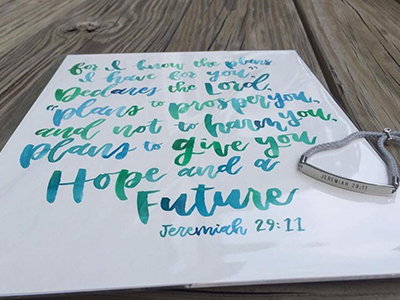 for I know the plans
I have for you,"
Declares the Lord,
"plans to prosper you,
and not to harm you,
plans to give you
Hope and a
Future
Jeremiah 29:11
JEREMIAH 29:11